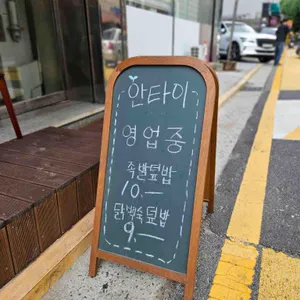 안타이
영업중
족발덮밥
10.—
닭백숙덮밥
9.—